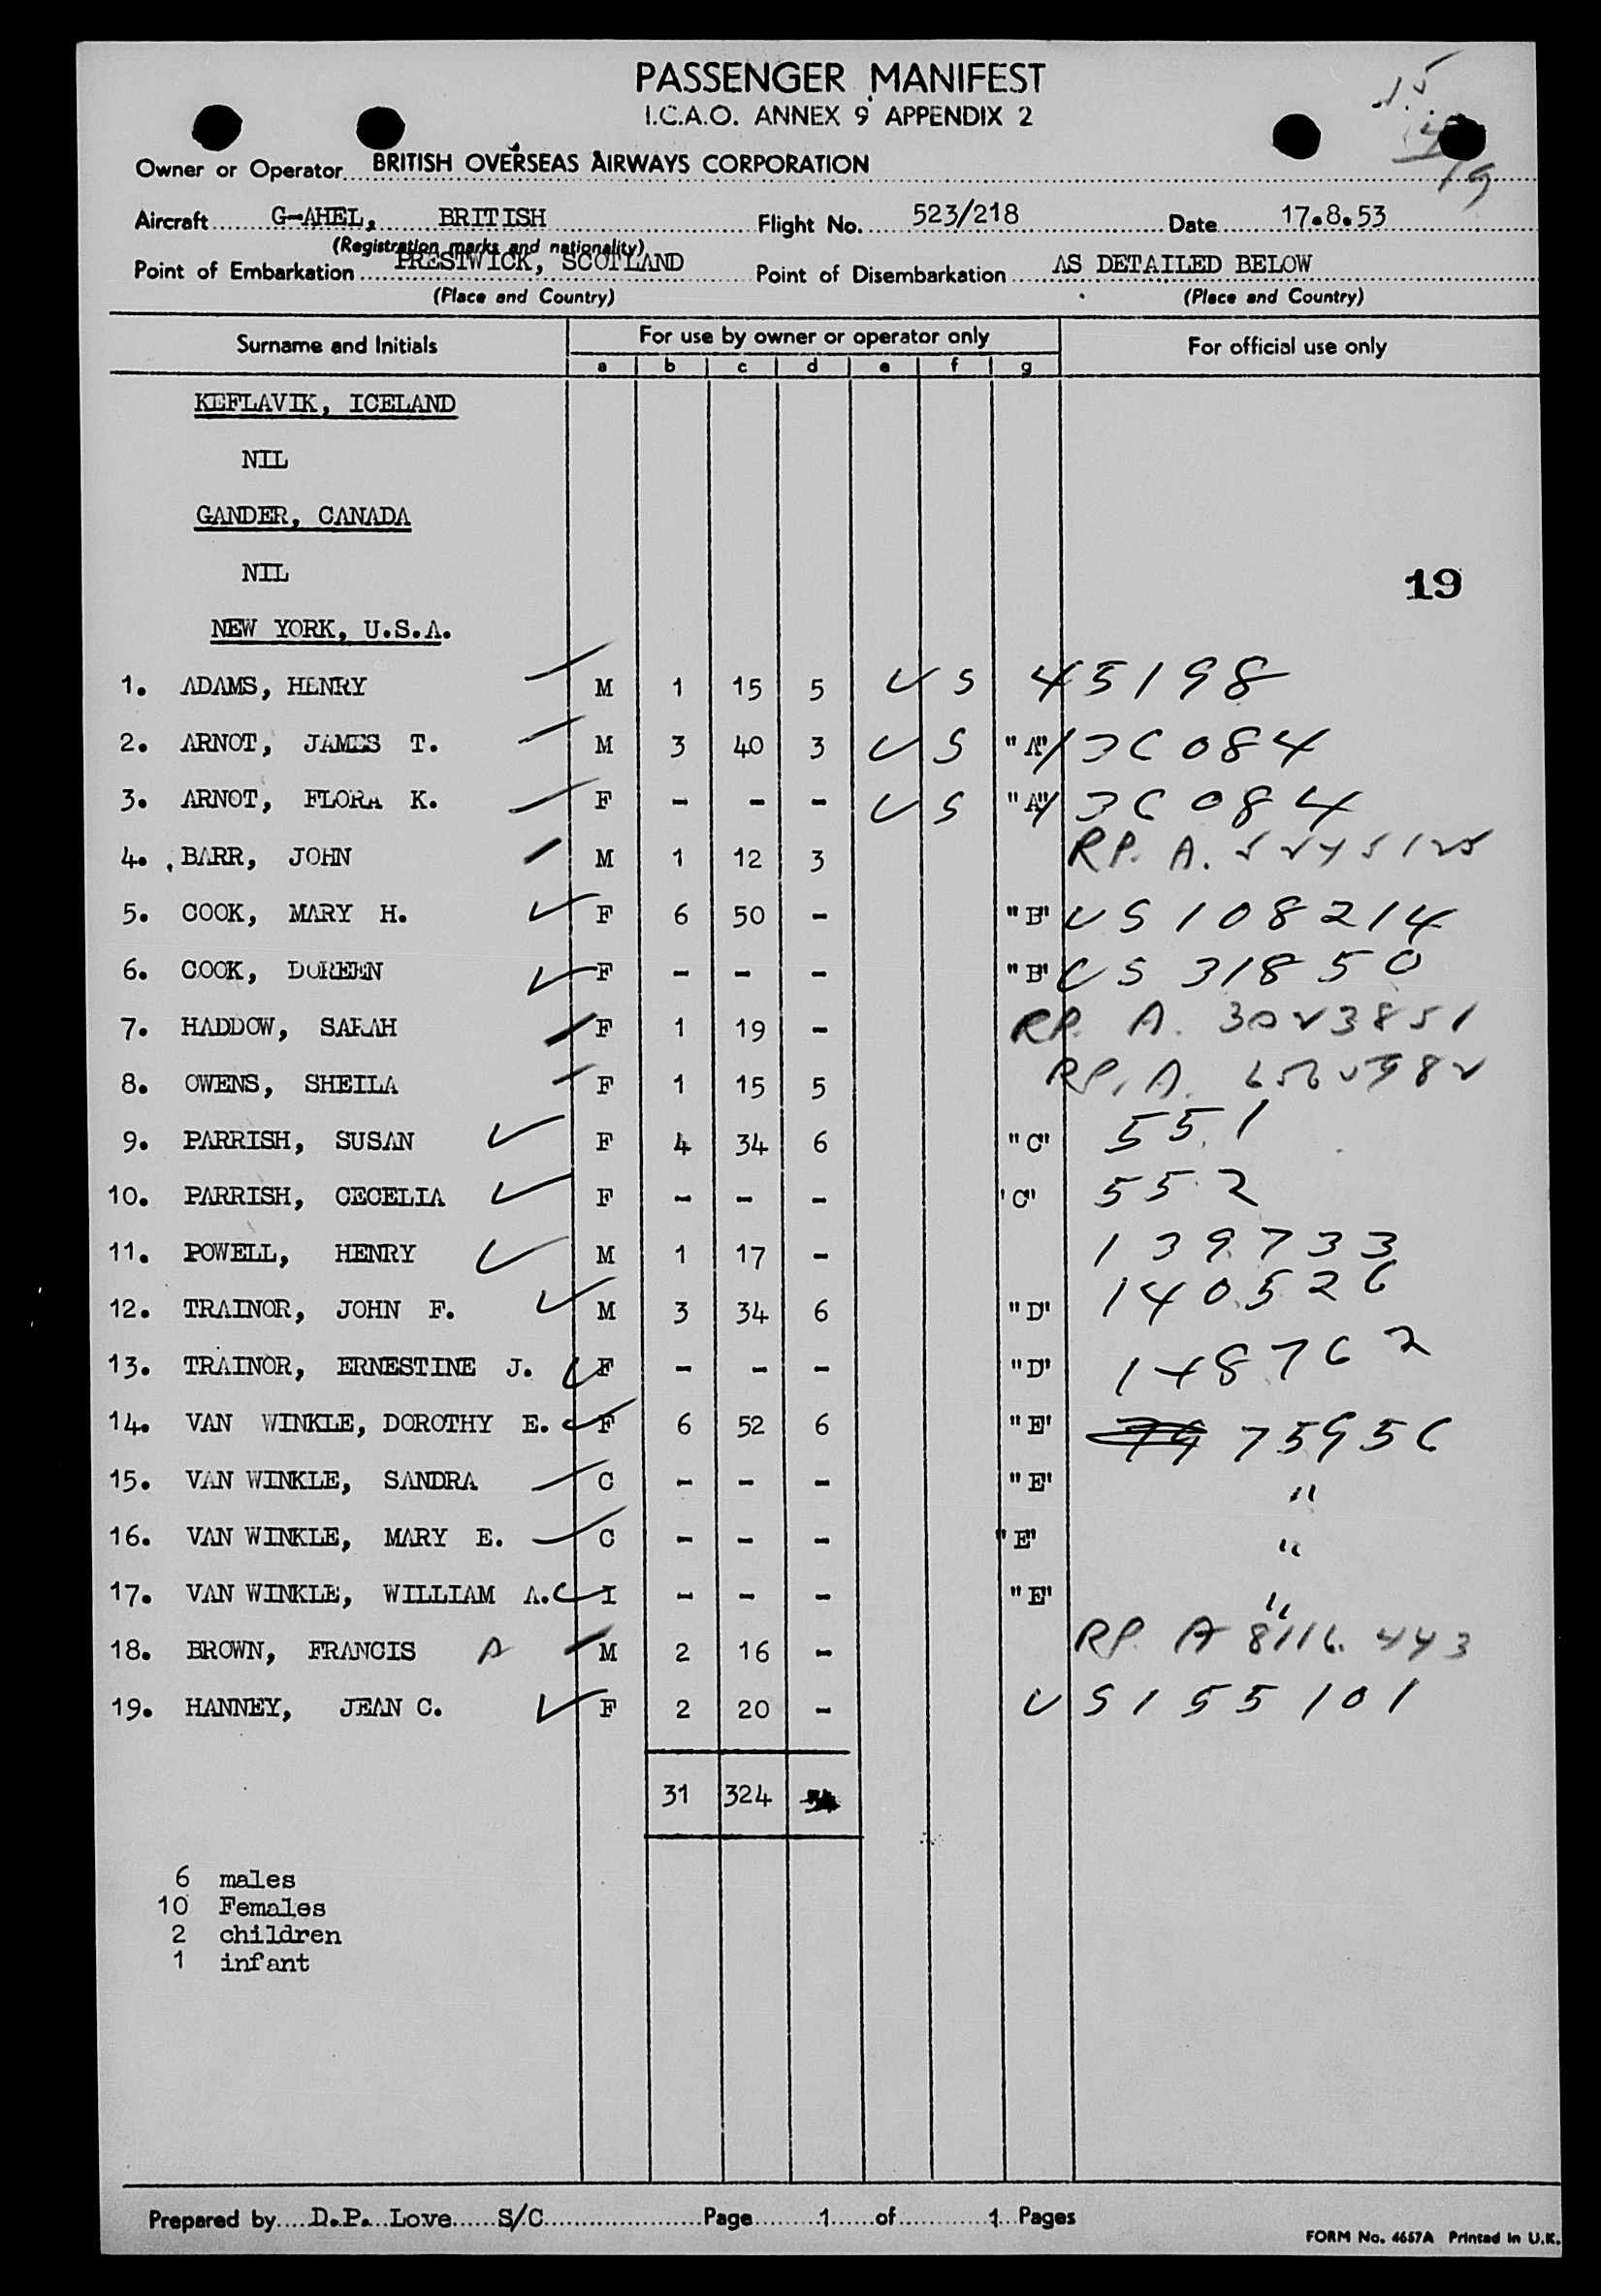 PASSENGER MANIFEST
I.C.A.O. ANNEX 9 APPENDIX 2
15
4
19
Owner or Operator BRITISH OVERSEAS AIRWAYS CORPORATION
Aircraft G-AHEL, BRITISH Flight No. 523/218 Date 17.8.53
(Registration marks and nationality)
Point of Embarkation PRESTWICK, SCOTLAND Point of Disembarkation AS DETAILED BELOW
(Place and Country) (Place and Country)
Surname and Initials For use by owner or operator only For official use only
a b c d e f g
KEFLAVIK, ICELAND
NIL
GANDER, CANADA
NIL
19
NEW YORK, U.S.A.
1. ADAMS, HENRY M 1 15 5 US 45198
2. ARNOT, JAMES T. M 3 40 3 US "A" 136084
3. ARNOT, FLORA K. F - - - US "A" 136084
4. BARR, JOHN M 1 12 3 RP. A. 5245125
5. COOK, MARY H. F 6 50 - "B" US 108214
6. COOK, DOREEN F - - - "B" US 31850
7. HADDOW, SARAH F 1 19 - RP. A. 3023851
8. OWENS, SHEILA F 1 15 5 RP. A.
9. PARRISH, SUSAN F 4 34 6 "C" 551
10. PARRISH, CECELIA F - - - "C" 552
11. POWELL, HENRY M 1 17 - 139733
12. TRAINOR, JOHN F. M 3 34 6 "D" 140526
13. TRAINOR, ERNESTINE J. F - - - "D" 148762
14. VAN WINKLE, DOROTHY E. F 6 52 6 "E" 75956
15. VAN WINKLE, SANDRA C - - - "E" "
16. VAN WINKLE, MARY E. C - - - "E" "
17. VAN WINKLE, WILLIAM A. I - - - "E" "
18. BROWN, FRANCIS A M 2 16 - RP. A 8116.443
19. HANNEY, JEAN C. F 2 20 - US 155101
31 324
6 males
10 Females
2 children
1 infant
Prepared by D.P. Love S/C Page 1 of 1 Pages
FORM No. 4657A Printed in U.K.